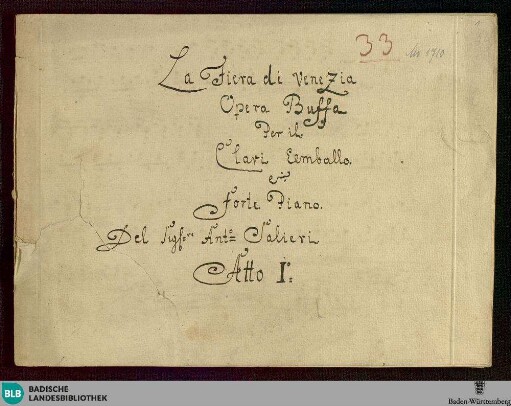 33 Ms 1710
La Fiera di Venezia
Opera Buffa
Per il.
Clavi Cembalo.
e
Forte Piano.
Del Sigre Anto Salieri
Atto I:
BLB BADISCHE
LANDESBIBLIOTHEK
Baden-Württemberg